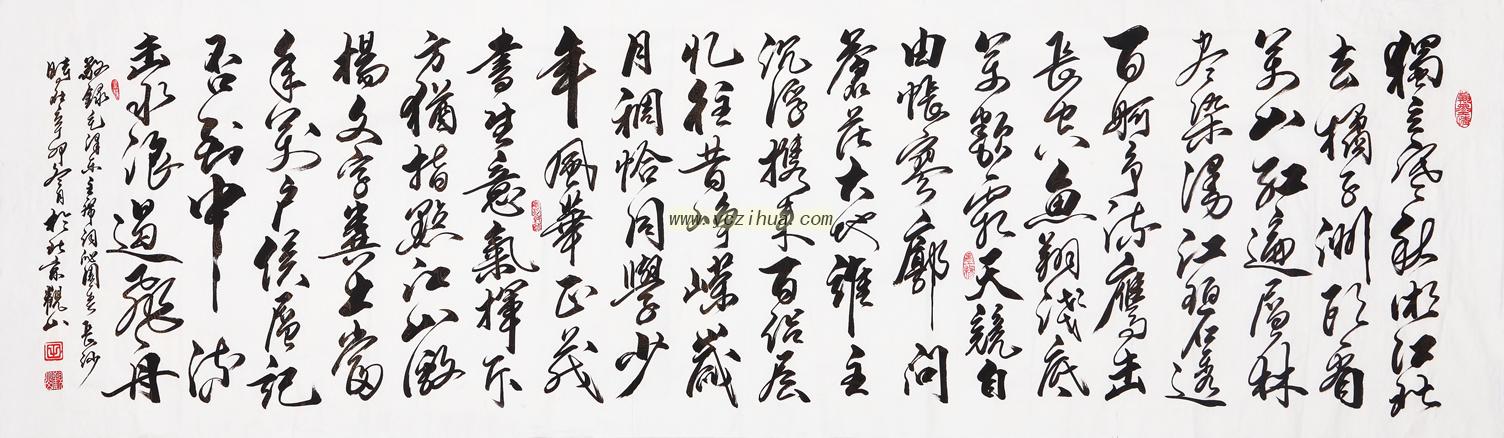 獨立寒秋湘江北
去橘子洲頭看
萬山紅遍層林
盡染漫江碧透
百舸爭流鷹擊
長空魚翔淺底
萬類霜天競自
由悵寥廓問
蒼茫大地誰主
沉浮携來百侣
忆往昔崢嵘歲
月稠恰同學少
年風華正茂
書生意氣揮斥
方猶指點江山激
揚文字糞土當
年萬户侯曾記
否到中流
击水浪遏飛舟
敬録毛澤東主席詞沁園春長沙
時在辛卯冬月於北京觀山
www.yczihua.com